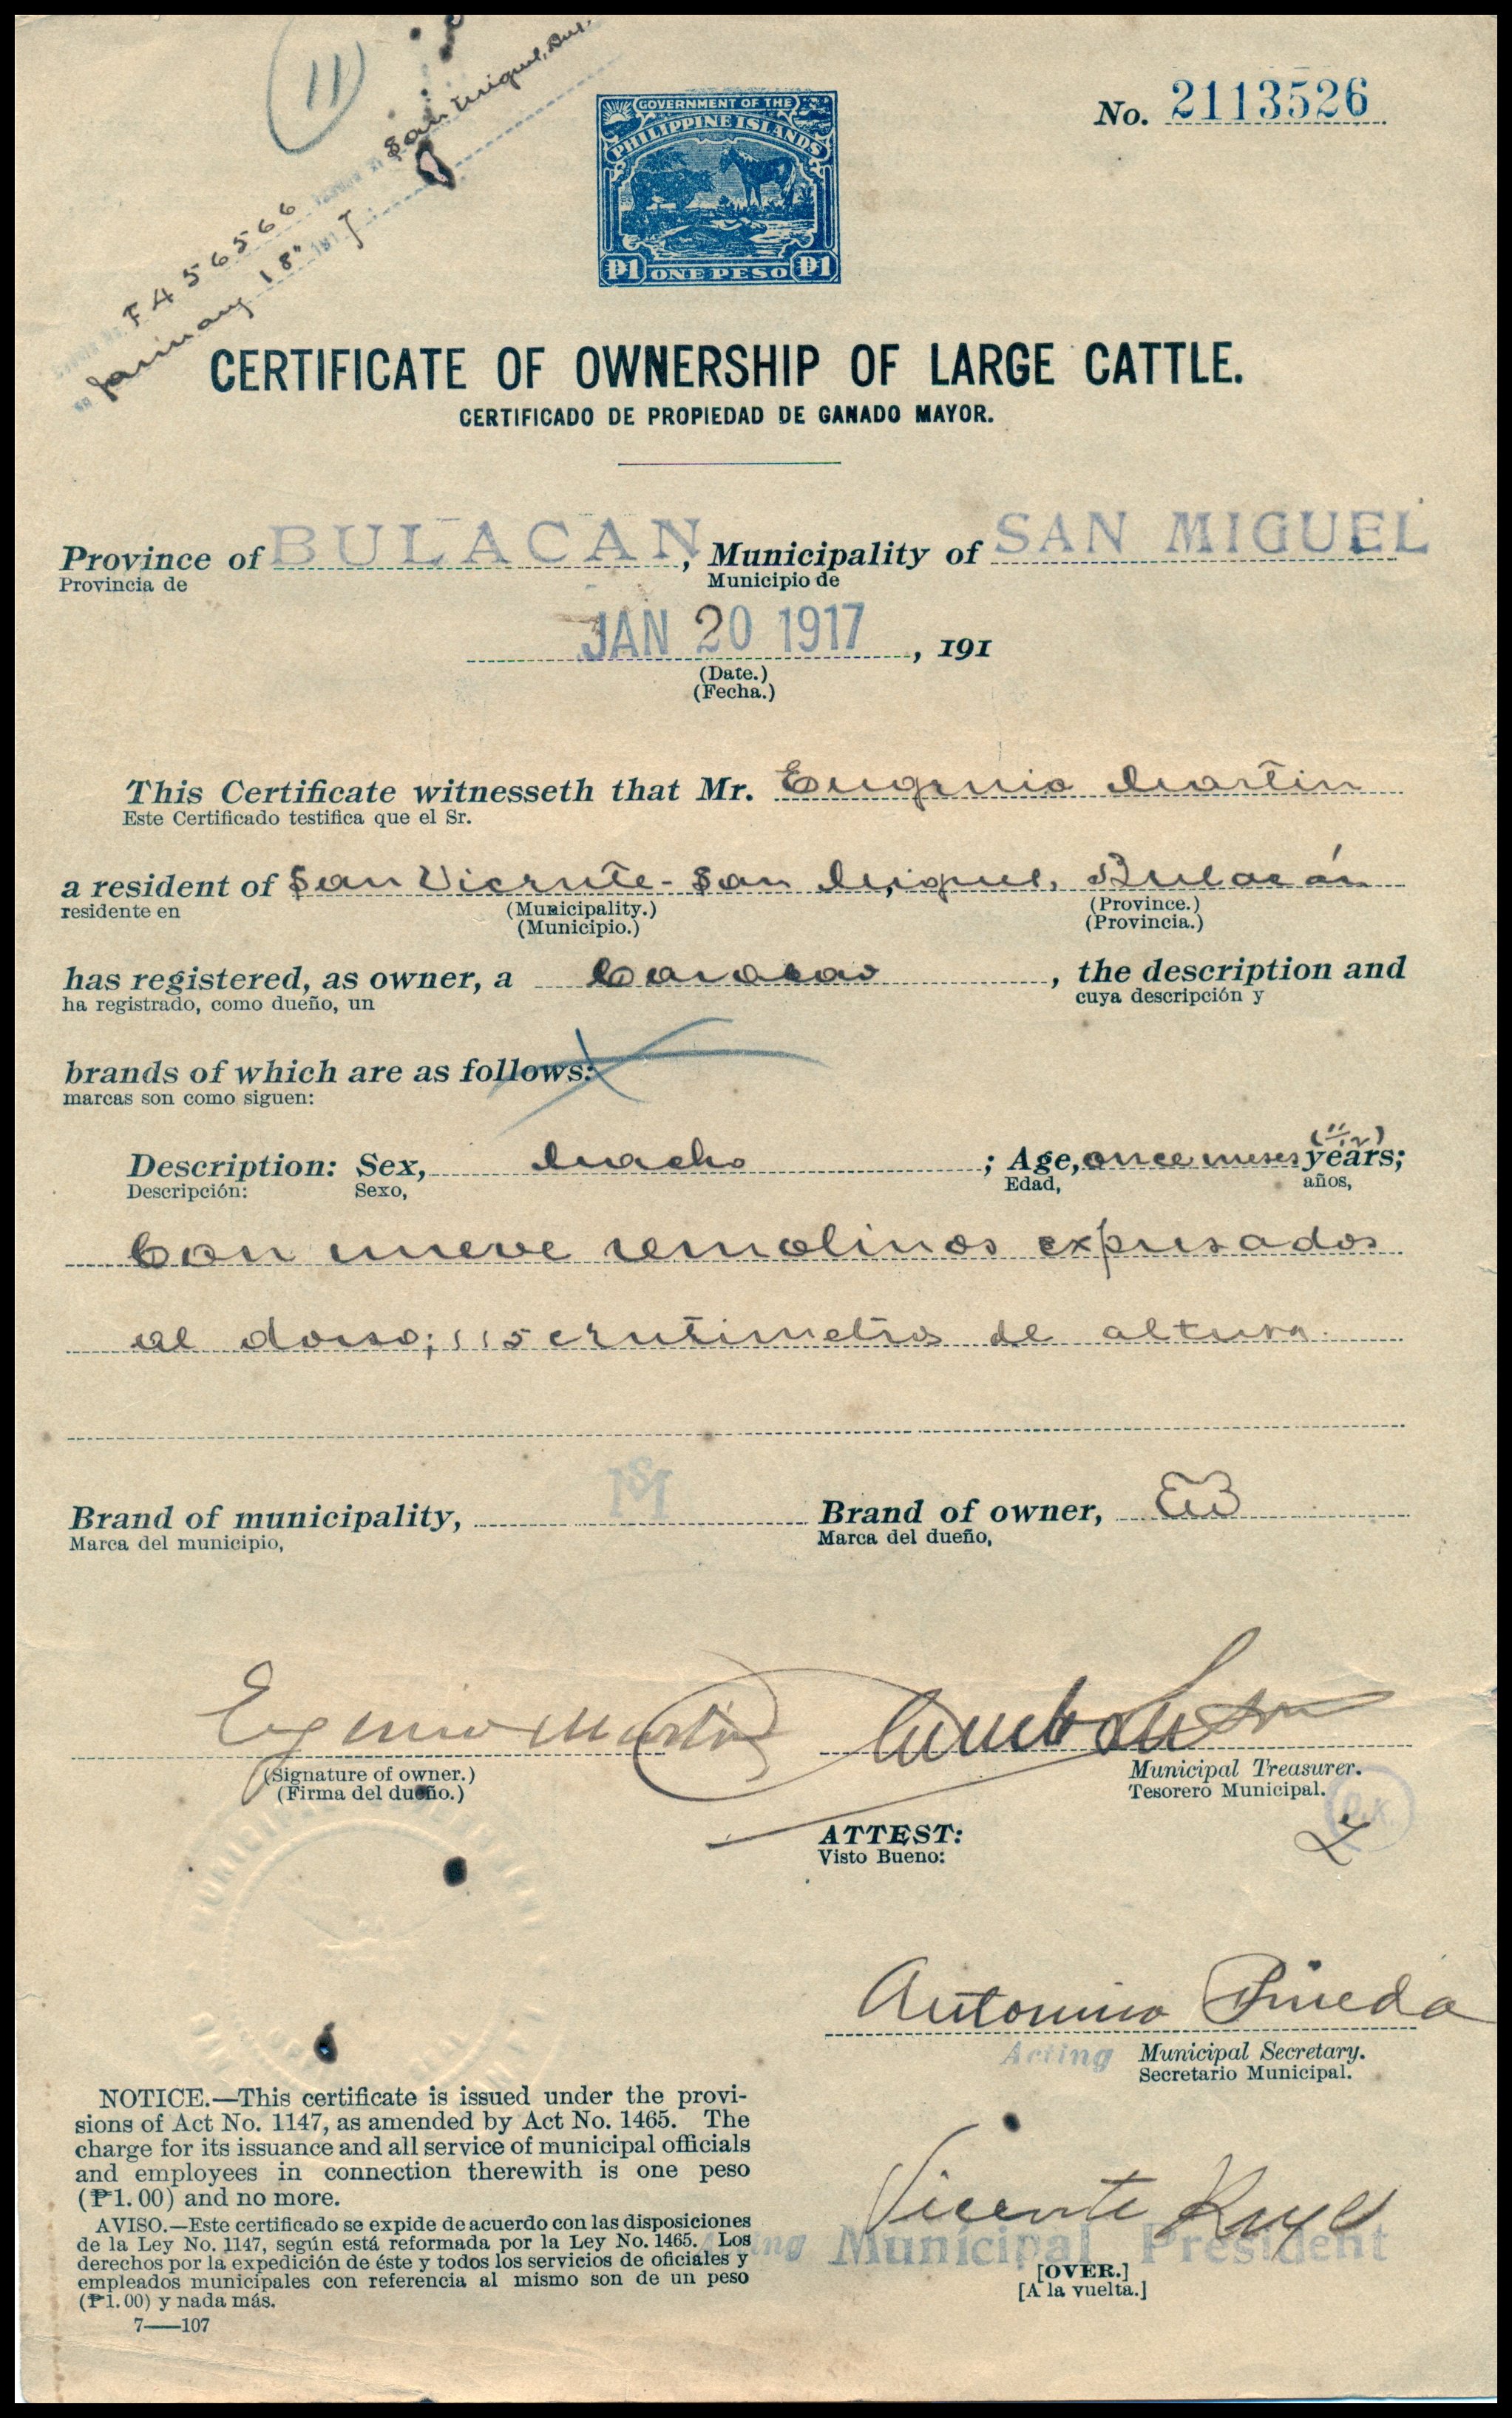 11
San Miguel, Bul.
F456566
January 18" 191 7
GOVERNMENT OF THE
PHILIPPINE ISLANDS
₱1 ONE PESO ₱1
No. 2113526
CERTIFICATE OF OWNERSHIP OF LARGE CATTLE.
CERTIFICADO DE PROPIEDAD DE GANADO MAYOR.
Province of BULACAN, Municipality of SAN MIGUEL
Provincia de Municipio de
JAN 20 1917, 191
(Date.)
(Fecha.)
This Certificate witnesseth that Mr. Eugenio Martin
Este Certificado testifica que el Sr.
a resident of San Vicente - San Miguel, Bulacán
residente en (Municipality.) (Province.)
(Municipio.) (Provincia.)
has registered, as owner, a Carabao, the description and
ha registrado, como dueño, un cuya descripción y
brands of which are as follows:
marcas son como siguen:
Description: Sex, Macho; Age, once meses years;
Descripción: Sexo, Edad, años,
Con nueve remolinos expresados
al dorso; 115 centimetros de altura.
Brand of municipality, SM Brand of owner,
Marca del municipio, Marca del dueño,
Eugenio Martin
(Signature of owner.) Municipal Treasurer.
(Firma del dueño.) Tesorero Municipal.
ATTEST:
Visto Bueno:
Antonino Pineda
Acting Municipal Secretary.
Secretario Municipal.
NOTICE.—This certificate is issued under the provi-
sions of Act No. 1147, as amended by Act No. 1465. The
charge for its issuance and all service of municipal officials
and employees in connection therewith is one peso
(₱1.00) and no more.
AVISO.—Este certificado se expide de acuerdo con las disposiciones
de la Ley No. 1147, según está reformada por la Ley No. 1465. Los
derechos por la expedición de éste y todos los servicios de oficiales y
empleados municipales con referencia al mismo son de un peso
(₱1.00) y nada más.
7——107
Vicente Reyes
Acting Municipal President
[OVER.]
[A la vuelta.]